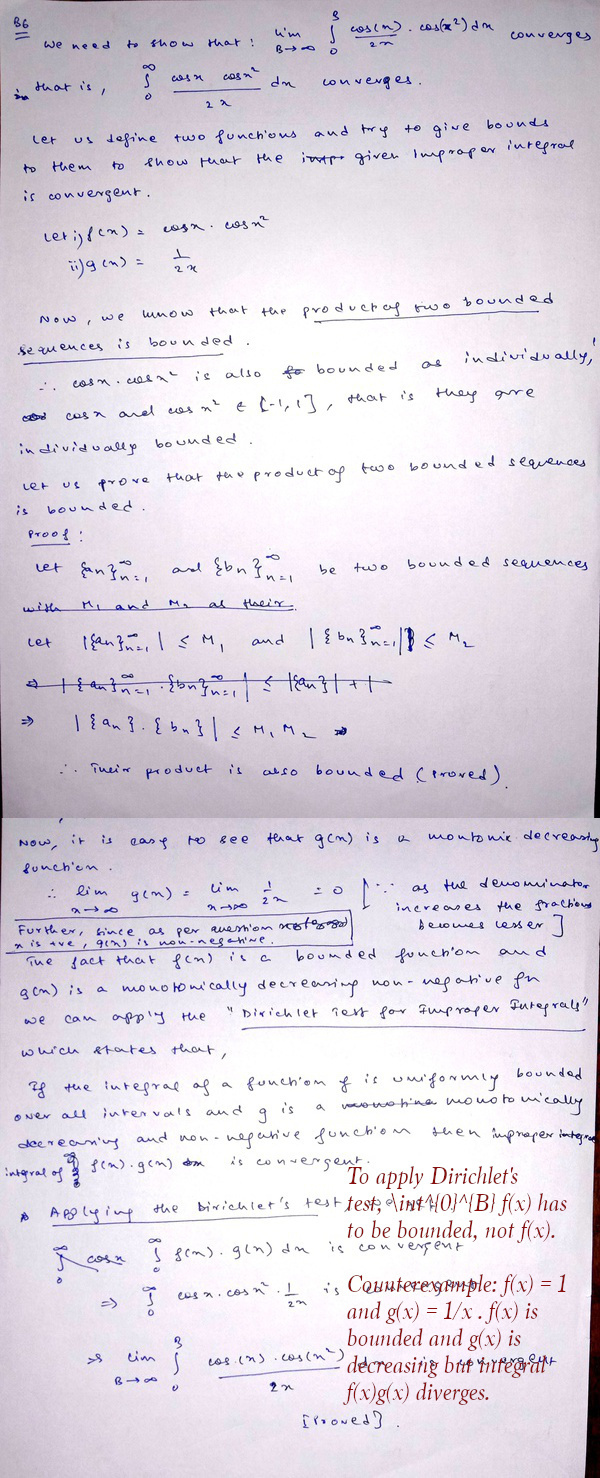 B6
We need to show that: lim B→∞ ∫_0^B cos(x)/2x · cos(x²) dx converges
that is, ∫_0^∞ cosx cosx²/2x dx converges.
Let us define two functions and try to give bounds
to them to show that the given improper integral
is convergent.
Let i) f(x) = cosx · cosx²
ii) g(x) = 1/2x
Now, we know that the product of two bounded
sequences is bounded.
∴ cosx · cosx² is also bounded as individually,
cosx and cosx² ∈ [-1, 1], that is they are
individually bounded.
Let us prove that the product of two bounded sequences
is bounded.
Proof:
Let {an}_{n=1}^∞ and {bn}_{n=1}^∞ be two bounded sequences
with M₁ and M₂ as their
Let |{an}_{n=1}^∞| ≤ M₁ and |{bn}_{n=1}^∞| ≤ M₂
⇒ |{an}_{n=1}^∞ · {bn}_{n=1}^∞| ≤ |{an}| + |
⇒ |{an} · {bn}| ≤ M₁ M₂
∴ Their product is also bounded (Proved).
Now, it is easy to see that g(x) is a montonic decreasing
function.
∴ lim x→∞ g(x) = lim x→∞ 1/2x = 0 [∵ as the denominator
increases the fractions
becomes lesser]
Further, since as per question
x is +ve, g(x) is non-negative.
The fact that f(x) is a bounded function and
g(x) is a monotonically decreasing non-negative fn
we can apply the "Dirichlet Test for Improper Integrals"
which states that,
If the integral of a function f is uniformly bounded
over all intervals and g is a monotonically
decreasing and non-negative function then improper
integral of f(x) · g(x) is convergent.
Applying the Dirichlet's test,
∫_0^∞ cosx ∫_0^∞ f(x) · g(x) dx is convergent
⇒ ∫_0^∞ cosx · cosx² · 1/2x is convergent
⇒ lim B→∞ ∫_0^B cos(x) · cos(x²)/2x dx is convergent
[Proved].
To apply Dirichlet's
test, \int^{0}^{B} f(x) has
to be bounded, not f(x).
Counterexample: f(x) = 1
and g(x) = 1/x . f(x) is
bounded and g(x) is
decreasing but integral
f(x)g(x) diverges.